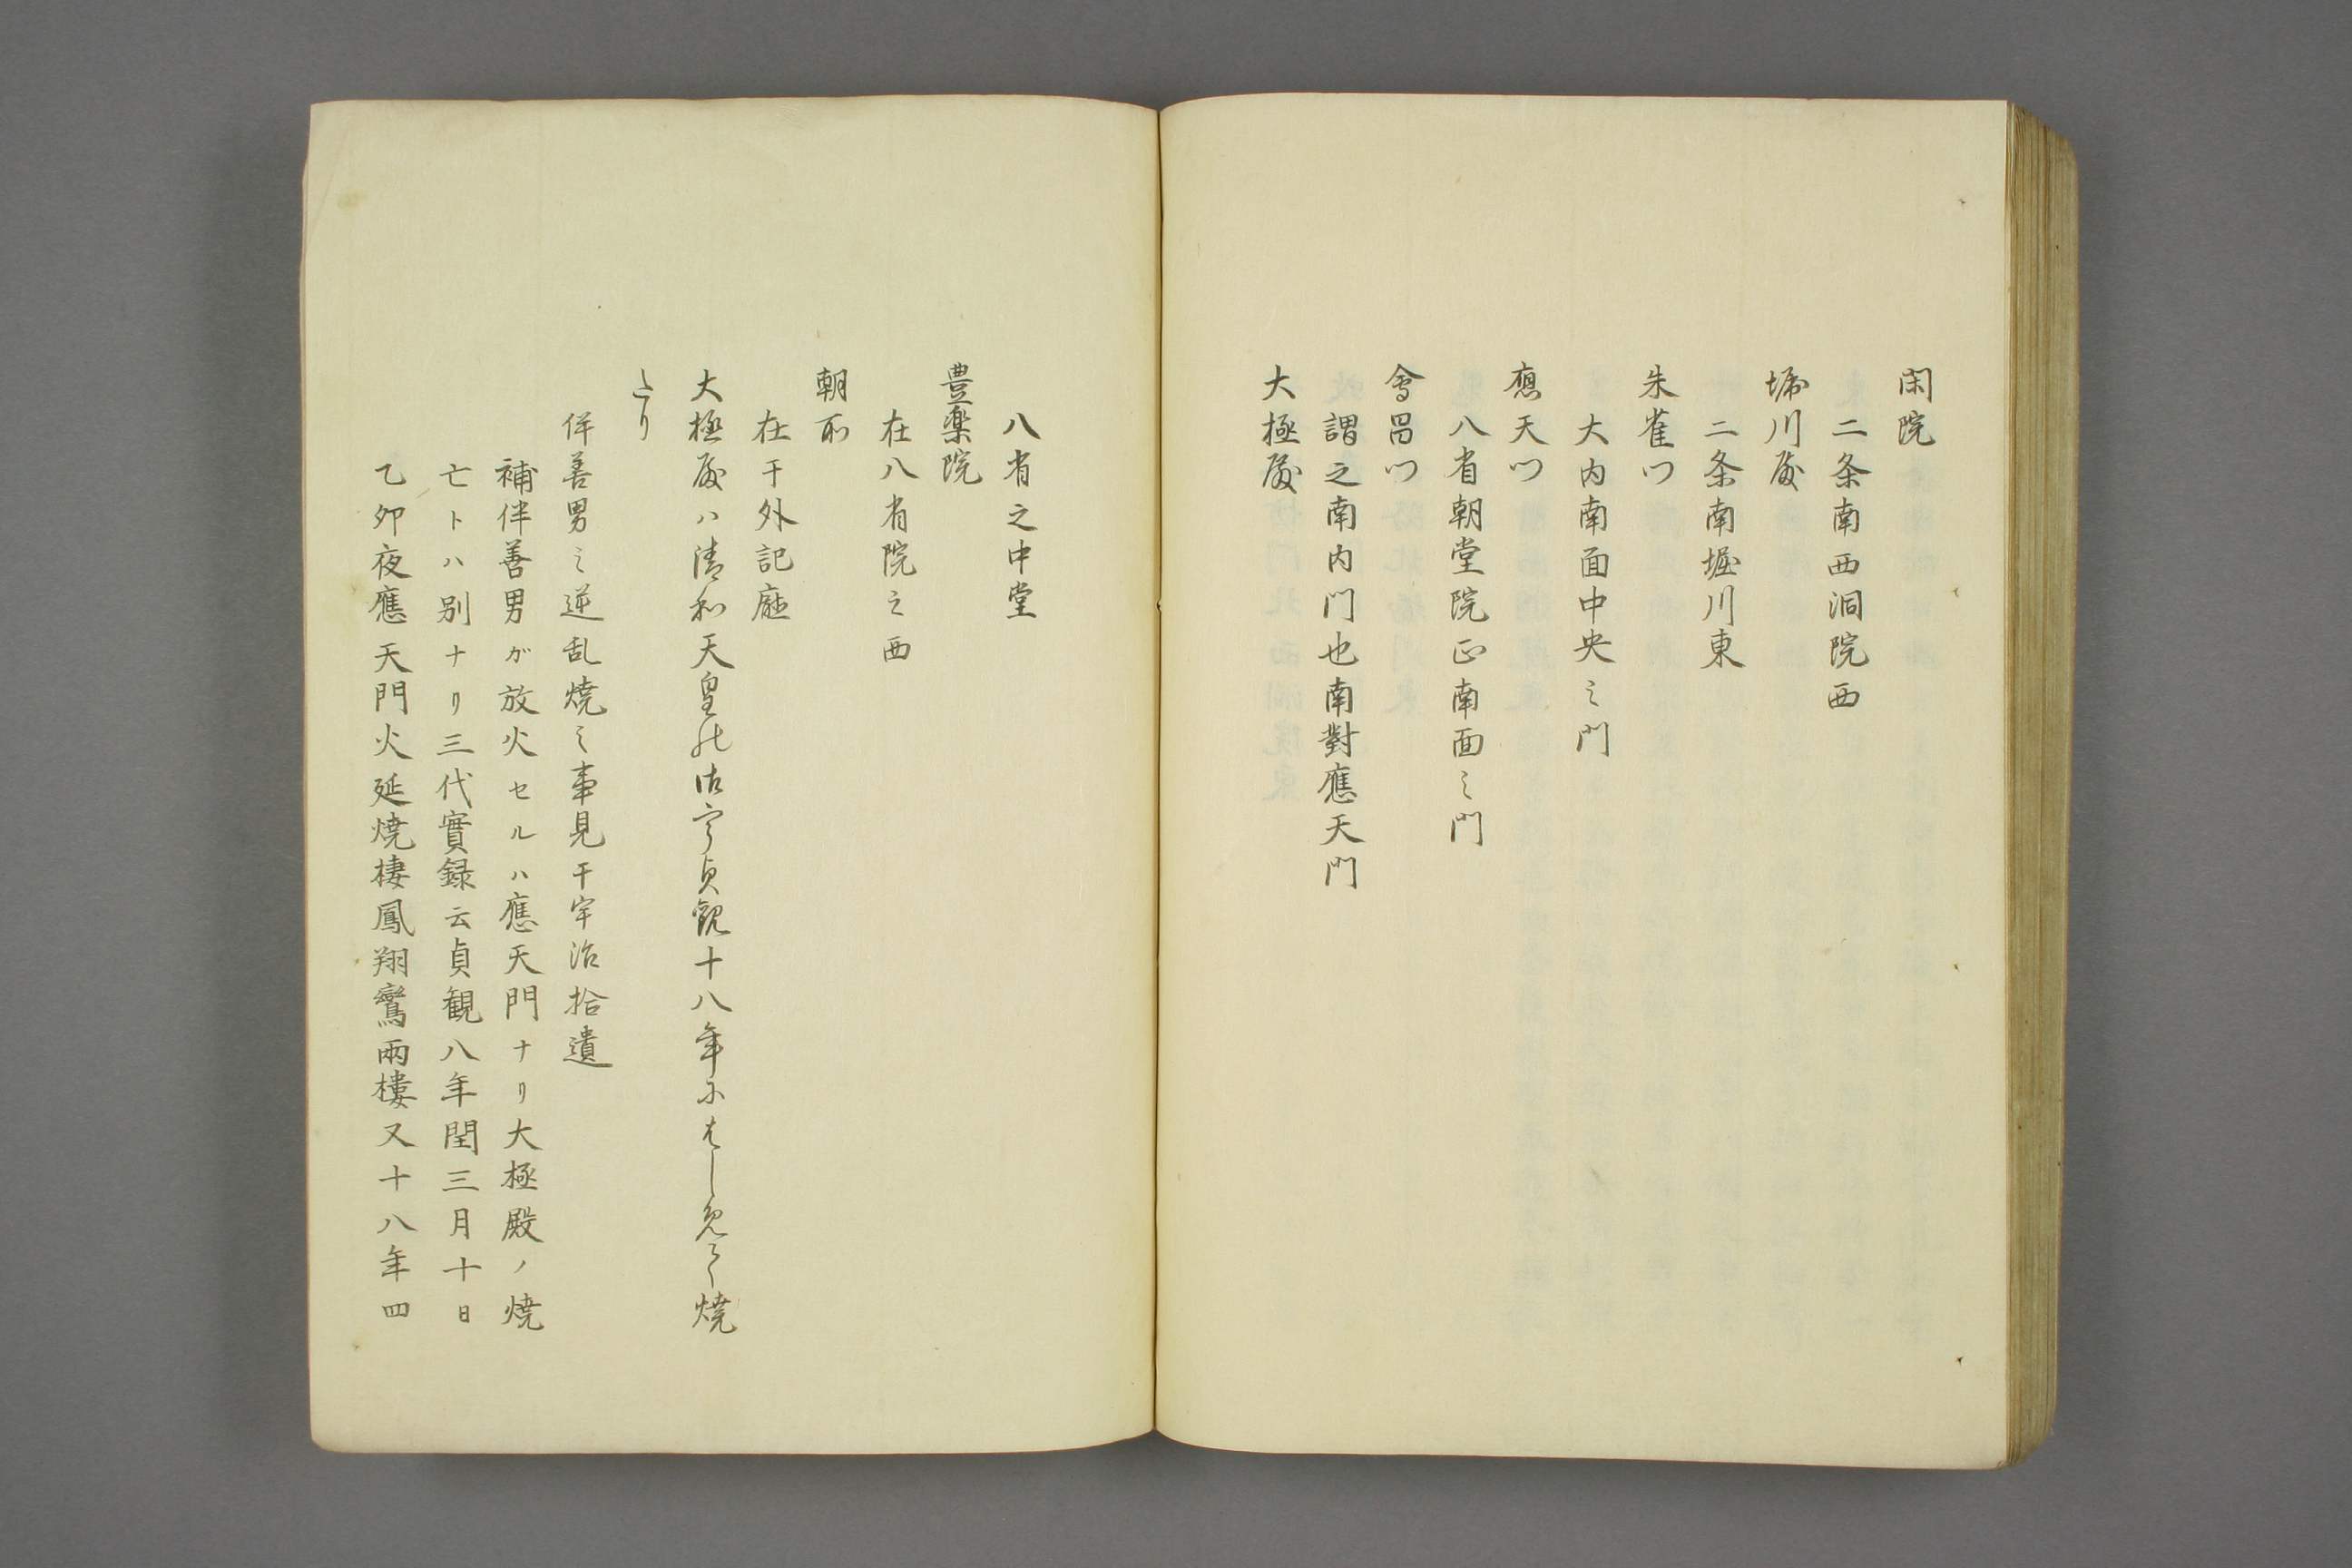 閑院
二条南西洞院西
堀川殿
二条南堀川東
朱雀門
大内南面中央之門
應天門
八省朝堂院正南面之門
會昌門
謂之南内門也南對應天門
大極殿
八省之中堂
豊楽院
在八省院之西
朝所
在于外記廳
大極殿ハ清和天皇の御宇貞観十八年にはしめて焼
たり
伴善男之逆乱焼之事見于宇治拾遺
補伴善男ガ放火セルハ應天門ナリ大極殿ノ焼
亡トハ別ナリ三代實録云貞観八年閏三月十日
乙卯夜應天門火延焼棲鳳翔鸞兩樓又十八年四